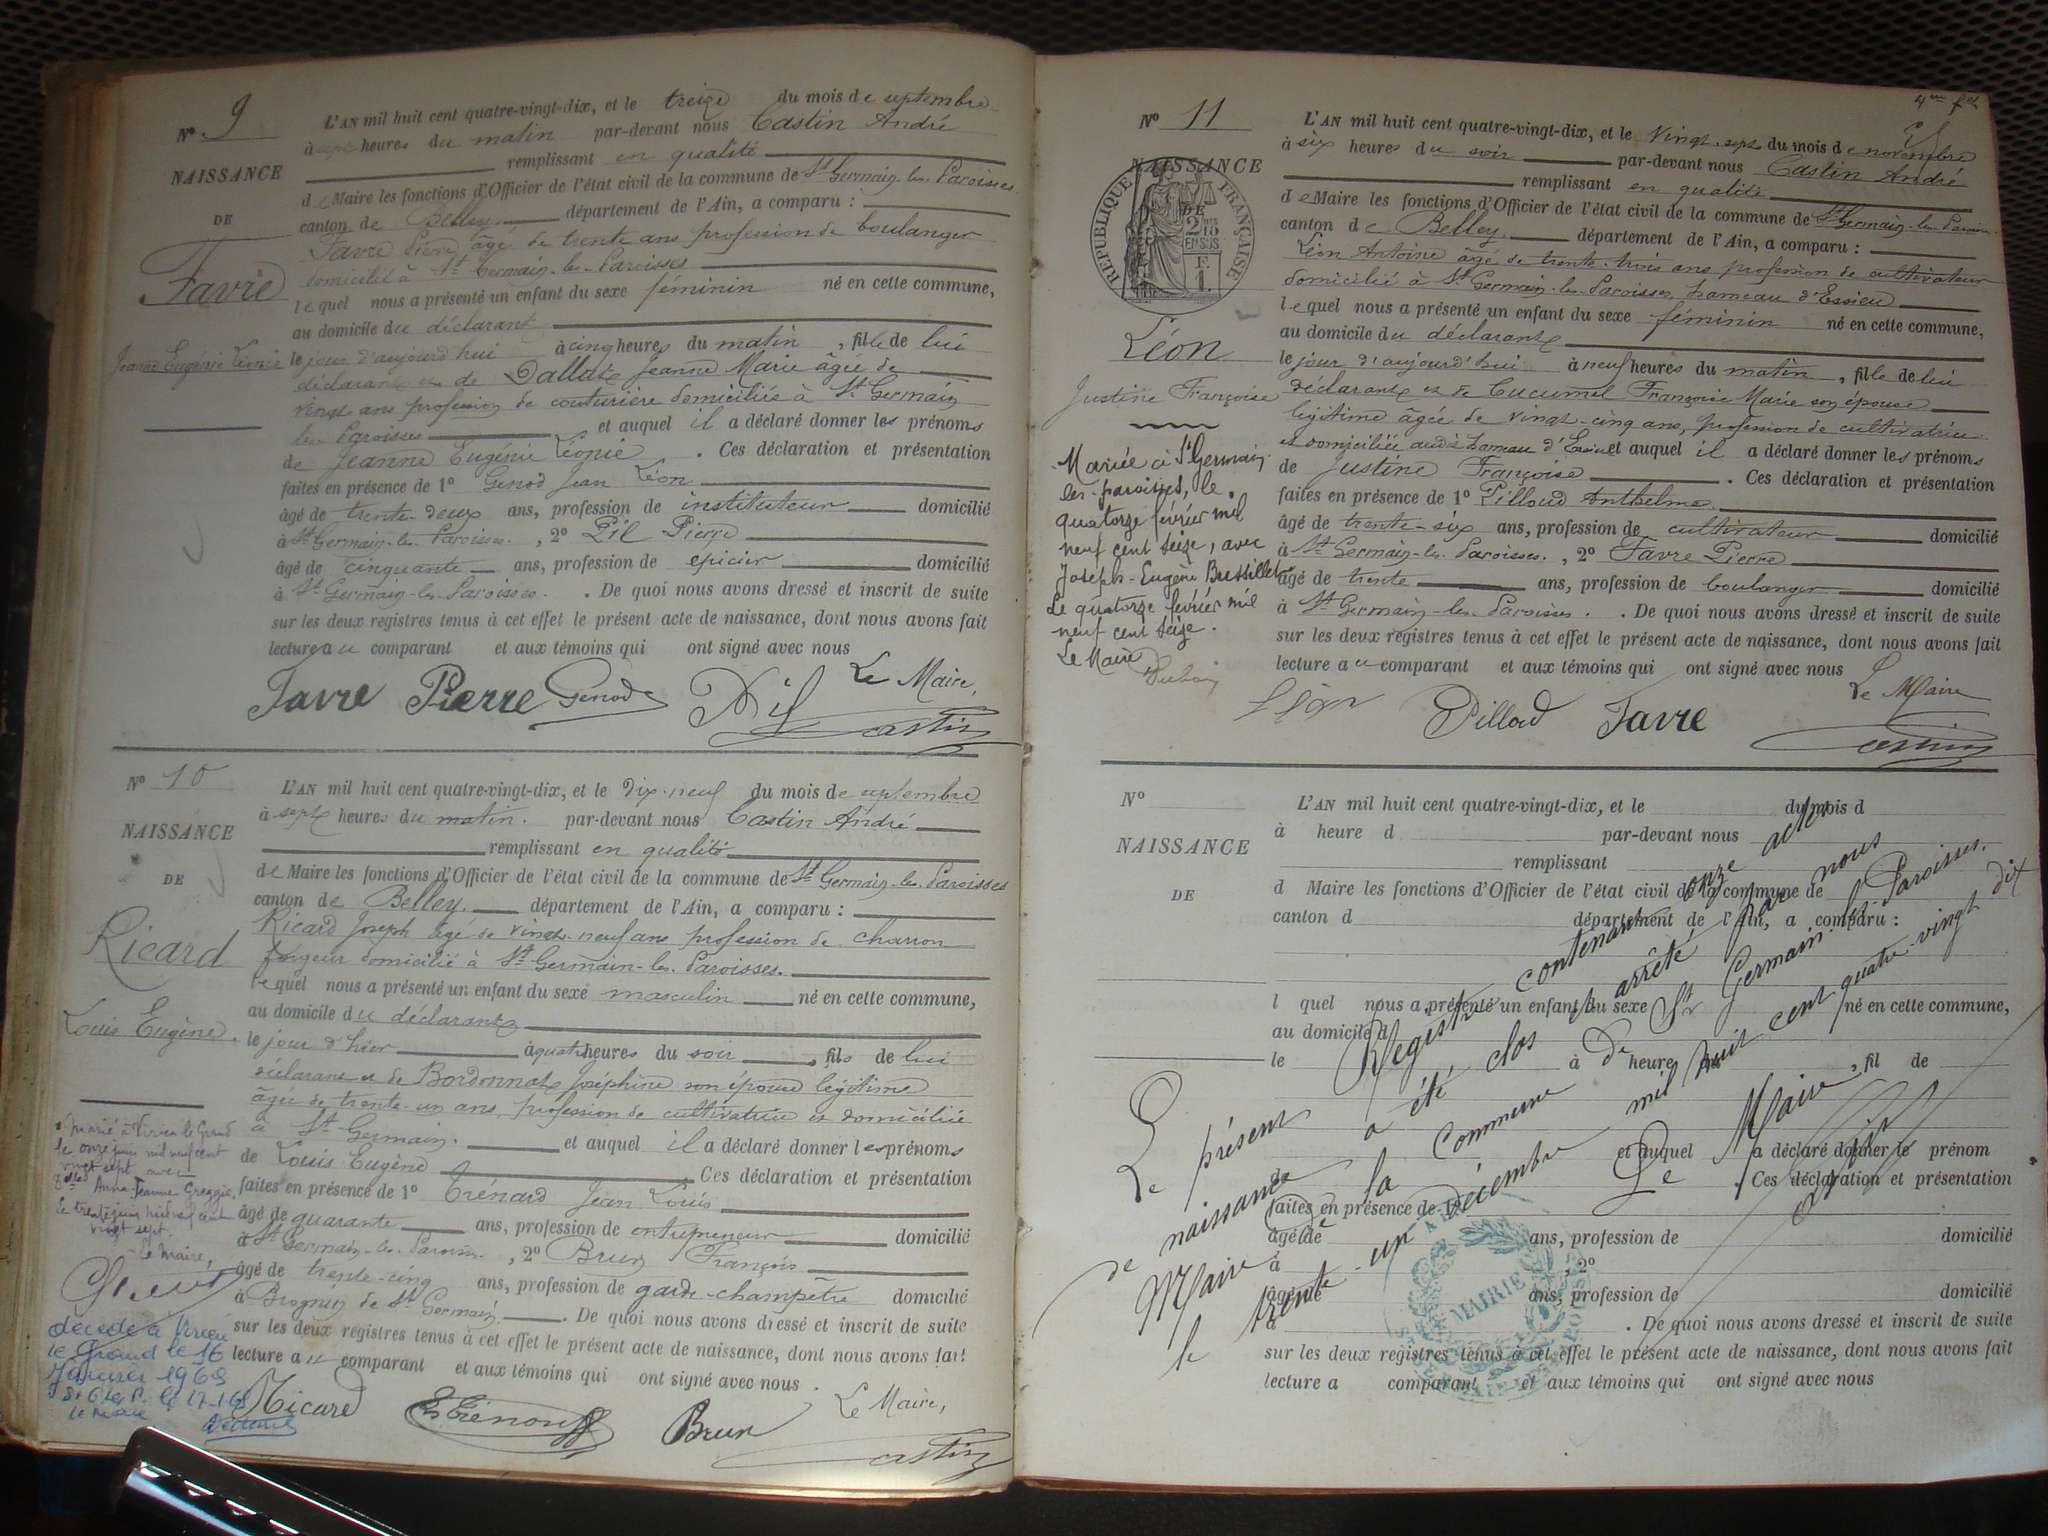 N° 9
NAISSANCE
DE
Favre
Jeanne Eugénie Léonie
L'AN mil huit cent quatre-vingt-dix, et le treize du mois de septembre
à sept heures du matin par-devant nous Castin André
remplissant en qualité
de Maire les fonctions d'Officier de l'état civil de la commune de St Germain-les-Paroisses
canton de Belley département de l'Ain, a comparu :
Favre Pierre âgé de trente ans profession de boulanger
domicilié à St Germain-les-Paroisses
lequel nous a présenté un enfant du sexe féminin né en cette commune,
au domicile du déclarant
le jour d'aujourd'hui à cinq heures du matin, fille de lui
déclarant et de Dallat Jeanne Marie âgée de
vingt ans profession de couturière domiciliée à St Germain
les Paroisses et auquel il a déclaré donner les prénoms
de Jeanne Eugénie Léonie. Ces déclaration et présentation
faites en présence de 1° Genod Jean Léon
âgé de trente-deux ans, profession de instituteur domicilié
à St Germain-les-Paroisses, 2° Pil Pierre
âgé de cinquante ans, profession de épicier domicilié
à St Germain-les-Paroisses. De quoi nous avons dressé et inscrit de suite
sur les deux registres tenus à cet effet le présent acte de naissance, dont nous avons fait
lecture au comparant et aux témoins qui ont signé avec nous
Le Maire,
Favre Pierre Genod Pil Castin
N° 10
NAISSANCE
DE
Ricard
Louis Eugène.
L'AN mil huit cent quatre-vingt-dix, et le dix-neuf du mois de septembre
à sept heures du matin. par-devant nous Castin André
remplissant en qualité
de Maire les fonctions d'Officier de l'état civil de la commune de St Germain-les-Paroisses
canton de Belley. département de l'Ain, a comparu :
Ricard Joseph âgé de vingt-neuf ans profession de charron
forgeur domicilié à St Germain-les-Paroisses.
lequel nous a présenté un enfant du sexe masculin né en cette commune,
au domicile du déclarant
le jour d'hier à quatre heures du soir, fils de lui
déclarant et de Bordonnat Joséphine son épouse légitime
âgée de trente-un ans, profession de cultivatrice et domiciliée
à St Germain. et auquel il a déclaré donner les prénoms
de Louis Eugène Ces déclaration et présentation
faites en présence de 1° Trénard Jean Louis
âgé de quarante ans, profession de entrepreneur domicilié
à St Germain-les-Parois., 2° Brun François
âgé de trente-cinq ans, profession de garde-champêtre domicilié
à Brognin de St Germain. De quoi nous avons dressé et inscrit de suite
sur les deux registres tenus à cet effet le présent acte de naissance, dont nous avons fait
lecture au comparant et aux témoins qui ont signé avec nous.
Le Maire,
Ricard Trénard Brun Castin
Marié à Virieu le Grand
le onze juin mil neuf cent
vingt sept avec
Anna Jeanne Greggio.
Le trente juin mil neuf cent
vingt sept.
Le Maire,
décédé à Virieu
le Grand le 16
Janvier 1968
St G. les P. le 17-1-68
le Maire
4me fet
N° 11
NAISSANCE
DE
RÉPUBLIQUE FRANÇAISE
2 Dmes
EN SUS
F.
1.
Léon
Justine Françoise
Mariée à St Germain-
les-paroisses, le
quatorze février mil
neuf cent seize, avec
Joseph-Eugène Bressillet
Le quatorze février mil
neuf cent seize.
Le Maire
L'AN mil huit cent quatre-vingt-dix, et le vingt-sept du mois de novembre
à six heures du soir par-devant nous Castin André
remplissant en qualité
de Maire les fonctions d'Officier de l'état civil de la commune de St Germain-les-Parois.
canton de Belley. département de l'Ain, a comparu :
Léon Antoine âgé de trente-trois ans profession de cultivateur
domicilié à St Germain-les-Paroisses, hameau d'Essieu
lequel nous a présenté un enfant du sexe féminin né en cette commune,
au domicile du déclarant
le jour d'aujourd'hui à neuf heures du matin, fille de lui
déclarant et de Cucumel Françoise Marie son épouse
légitime âgée de vingt-cinq ans, profession de cultivatrice
et domiciliée audit hameau d'Essieu et auquel il a déclaré donner les prénoms
de Justine Françoise. Ces déclaration et présentation
faites en présence de 1° Pilloud Anthelme
âgé de trente-six ans, profession de cultivateur domicilié
à St Germain-les-Paroisses., 2° Favre Pierre
âgé de trente ans, profession de boulanger domicilié
à St Germain-les-Paroisses. De quoi nous avons dressé et inscrit de suite
sur les deux registres tenus à cet effet le présent acte de naissance, dont nous avons fait
lecture au comparant et aux témoins qui ont signé avec nous
Le Maire
Léon Pilloud Favre Castin
N°
NAISSANCE
DE
L'AN mil huit cent quatre-vingt-dix, et le du mois d
à heure d par-devant nous
remplissant
d Maire les fonctions d'Officier de l'état civil de la commune de
canton d département de l'Ain, a comparu :
l quel nous a présenté un enfant du sexe né en cette commune,
au domicile d
le à heure d, fil de
et auquel a déclaré donner le prénom
de. Ces déclaration et présentation
faites en présence de
âgé de ans, profession de domicilié
à, 2°
âgé de ans, profession de domicilié
à. De quoi nous avons dressé et inscrit de suite
sur les deux registres tenus à cet effet le présent acte de naissance, dont nous avons fait
lecture a comparant et aux témoins qui ont signé avec nous
Le présent Registre contenant onze actes
de naissance a été clos et arrêté par nous
Maire de la commune de St Germain-les-Paroisses.
le trente-un décembre mil huit cent quatre-vingt dix
Le Maire
Castin
MAIRIE